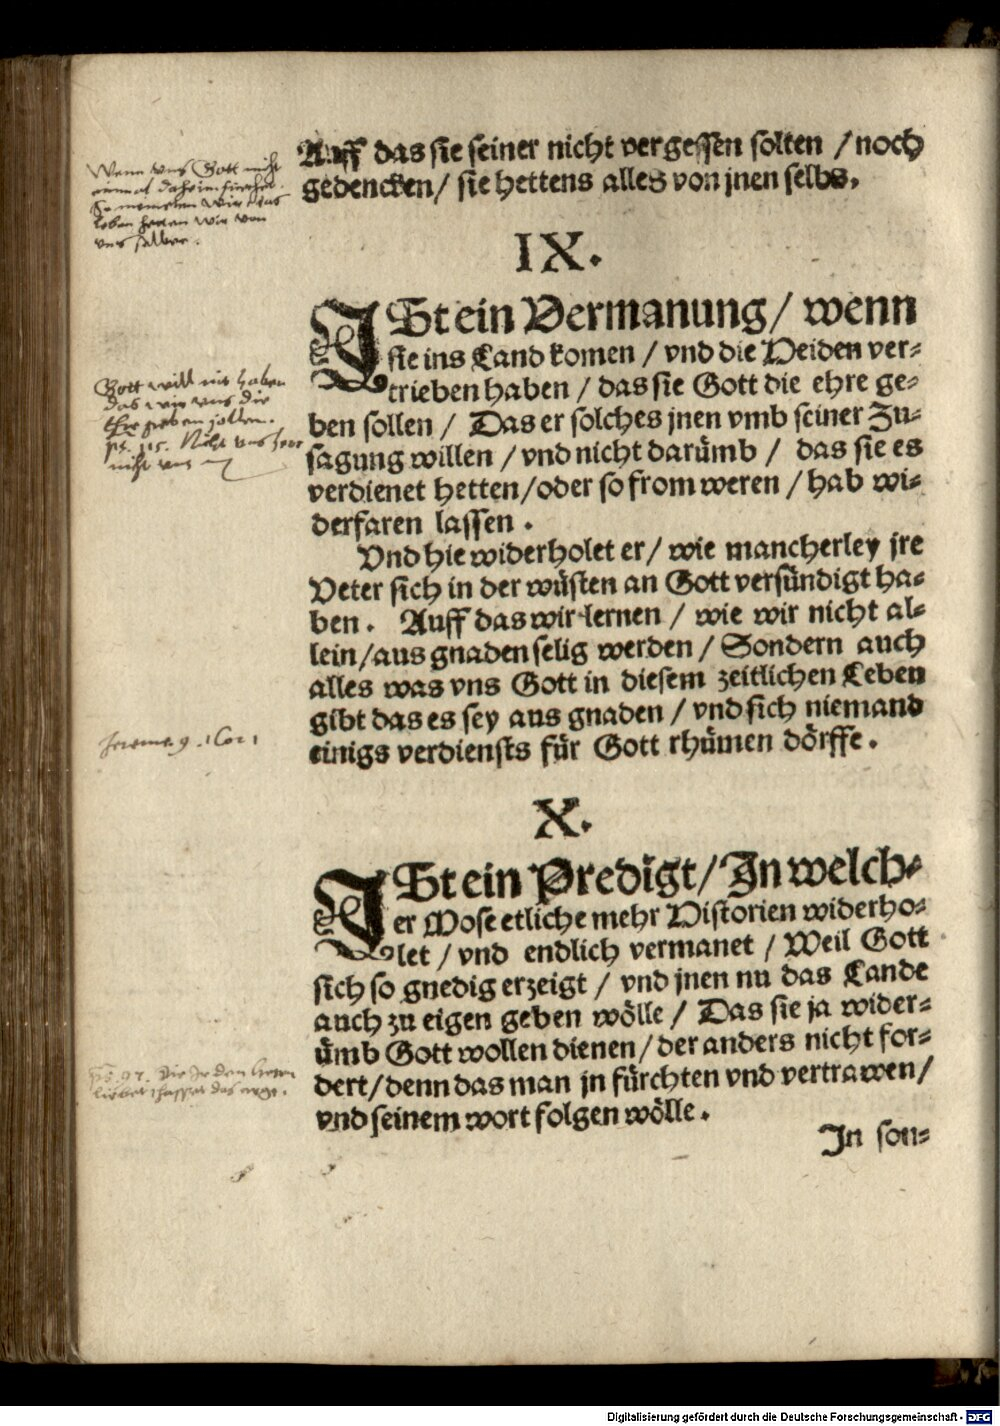 Auff das sie seiner nicht vergessen solten / noch
gedencken / sie hettens alles von jnen selbs.
Wenn vns Gott nicht
wir das
leben hetten wir von
vns selber.
IX.
JSt ein Vermanung / wenn
sie ins Land komen / vnd die Heiden ver-
trieben haben / das sie Gott die ehre ge-
ben sollen / Das er solches jnen vmb seiner Zu-
sagung willen / vnd nicht darümb / das sie es
verdienet hetten / oder so from weren / hab wi-
derfaren lassen.
Gott will nit haben
das wir vns die
Ehr geben sollen.
ps. 115. Nicht vns herr
nicht vns
Vnd hie widerholet er / wie mancherley jre
Veter sich in der wüsten an Gott versündigt ha-
ben. Auff das wir lernen / wie wir nicht al-
lein / aus gnaden selig werden / Sondern auch
alles was vns Gott in diesem zeitlichen Leben
gibt das es sey aus gnaden / vnd sich niemand
einigs verdiensts für Gott rhümen dörffe.
Jerem. 9. 1 Cor. 1
X.
JSt ein Predigt / Jn welch-
er Mose etliche mehr Historien widerho-
let / vnd endlich vermanet / Weil Gott
sich so gnedig erzeigt / vnd jnen nu das Lande
auch zu eigen geben wölle / Das sie ja wider-
ümb Gott wollen dienen / der anders nicht for-
dert / denn das man jn fürchten vnd vertrawen /
vnd seinem wort folgen wölle.
ps. 97. Die Jr den herrn
liebet hasset das arge.
Jn son-
Digitalisierung gefördert durch die Deutsche Forschungsgemeinschaft - DFG